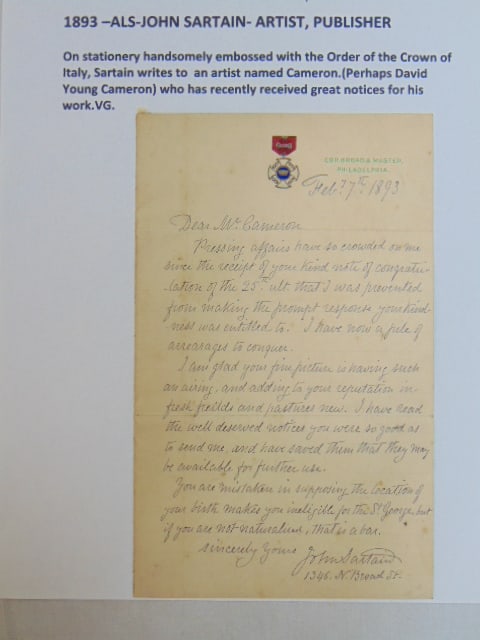 1893 –ALS-JOHN SARTAIN- ARTIST, PUBLISHER
On stationery handsomely embossed with the Order of the Crown of
Italy, Sartain writes to an artist named Cameron.(Perhaps David
Young Cameron) who has recently received great notices for his
work.VG.
COR. BROAD & MASTER,
PHILADELPHIA.
Feby 7th 1893
Dear Mr. Cameron
Pressing affairs have so crowded on me
since the receipt of your kind note of congratu-
lation of the 25th ult. that I was prevented
from making the prompt response your kind-
ness was entitled to. I have now a pile of
arrearages to conquer.
I am glad your fine picture is having such
an airing, and adding to your reputation in
fresh fields and pastures new. I have read
the well deserved notices you were so good as
to send me, and have saved them that they may
be available for further use.
You are mistaken in supposing the location of
your birth makes you ineligible for the St George, but
if you are not naturalized, that is a bar.
Sincerely Yours
John Sartain
1346. N. Broad St.